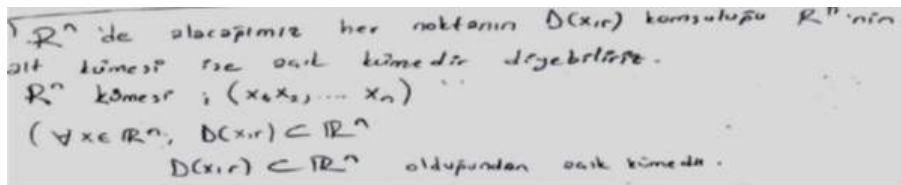 R^n 'de alacağımız her noktanın D(x,r) komşuluğu R^n 'nin
alt kümesi ise açık kümedir diyebiliriz.
R^n kümesi ; (x₁x₂, .... xₙ)
(∀x∈ℝ^n, D(x,r) ⊂ ℝ^n
D(x,r) ⊂ ℝ^n olduğundan açık kümedir.